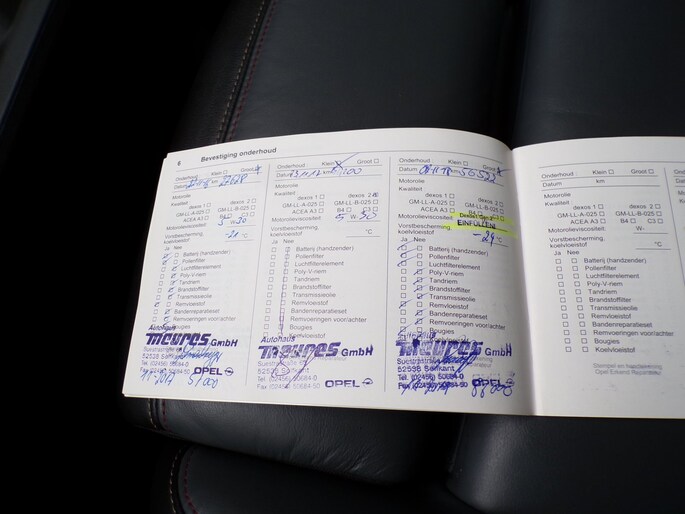 6 Bevestiging onderhoud
Onderhoud : Klein ☐ Groot
Datum km
Motorolie
Kwaliteit :
dexos 1 ☐ dexos 2
GM-LL-A-025 ☐ GM-LL-B-025 ☐
ACEA A3 ☐ B4 ☐ C3
Motorolieviscositeit: 5 W- 30
Vorstbescherming,
koelvloeistof °C
Ja Nee
Batterij (handzender)
Pollenfilter
Luchtfilterelement
Poly-V-riem
Tandriem
Brandstoffilter
Transmissieolie
Remvloeistof
Bandenreparatieset
Remvoeringen voor/achter
Bougies
Autohaus
Meures GmbH
52538 Selfkant
Tel. (02456) 50684-0
Fax (02456) 50684-50
OPEL
51000
Onderhoud : Klein Groot ☐
Datum km
Motorolie
Kwaliteit :
dexos 1 ☐ dexos 2
GM-LL-A-025 ☐ GM-LL-B-025 ☐
ACEA A3 ☐ B4 ☐ C3 ☐
Motorolieviscositeit: 5 W- 30
Vorstbescherming,
koelvloeistof °C
Ja Nee
Batterij (handzender)
Pollenfilter
Luchtfilterelement
Poly-V-riem
Tandriem
Brandstoffilter
Transmissieolie
Remvloeistof
Bandenreparatieset
Remvoeringen voor/achter
Bougies
Autohaus
Meures GmbH
52538 Selfkant
Tel. (02456) 50684-0
Fax (02456) 50684-50
OPEL
Onderhoud : Klein ☐ Groot
Datum km 56522
Motorolie
Kwaliteit :
dexos 1 ☐ dexos 2 ☐
GM-LL-A-025 ☐ GM-LL-B-025 ☐
ACEA A3 ☐ B4 ☐ C3 ☐
Motorolieviscositeit:
EINFÜLLEN!
Vorstbescherming,
koelvloeistof -29 °C
Ja Nee
Batterij (handzender)
Pollenfilter
Luchtfilterelement
Poly-V-riem
Tandriem
Brandstoffilter
Transmissieolie
Remvloeistof
Bandenreparatieset
Remvoeringen voor/achter
Bougies
Meures GmbH
52538 Selfkant
Tel. (02456) 50684-0
Fax (02456) 50684-50
OPEL
Onderhoud : Klein ☐ Groot ☐
Datum km
Motorolie
Kwaliteit :
dexos 1 ☐ dexos 2 ☐
GM-LL-A-025 ☐ GM-LL-B-025 ☐
ACEA A3 ☐ B4 ☐ C3 ☐
Motorolieviscositeit: W-
Vorstbescherming,
koelvloeistof °C
Ja Nee
☐ ☐ Batterij (handzender)
☐ ☐ Pollenfilter
☐ ☐ Luchtfilterelement
☐ ☐ Poly-V-riem
☐ ☐ Tandriem
☐ ☐ Brandstoffilter
☐ ☐ Transmissieolie
☐ ☐ Remvloeistof
☐ ☐ Bandenreparatieset
☐ ☐ Remvoeringen voor/achter
☐ ☐ Bougies
☐ ☐ Koelvloeistof
Stempel en handtekening
Opel Erkend Reparateur